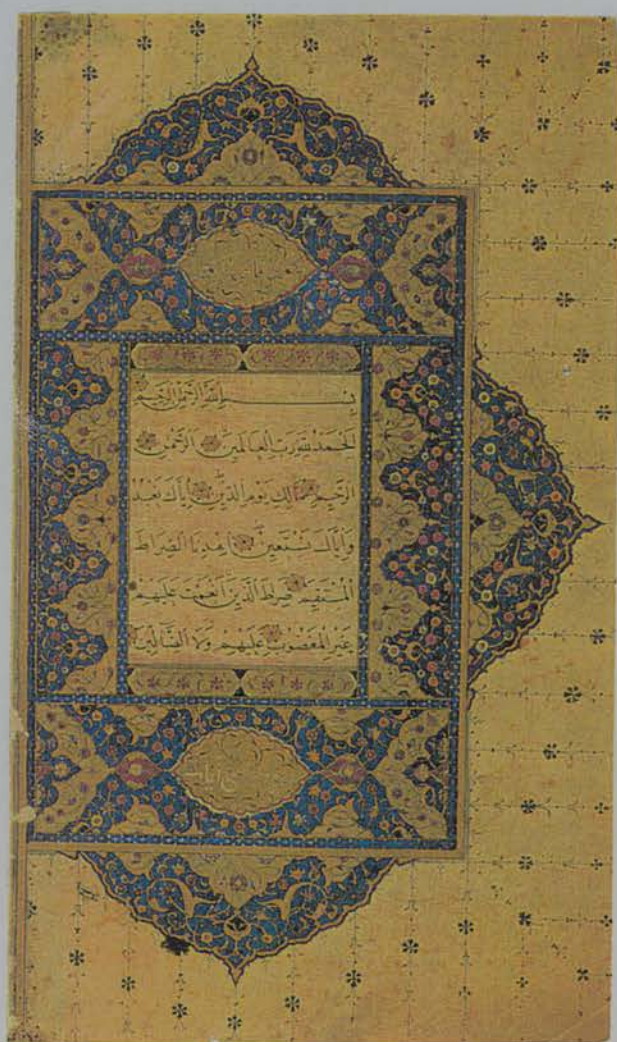 بسم الله الرحمن الرحيم
الحمد لله رب العالمين الرحمن
الرحيم مالك يوم الدين اياك نعبد
واياك نستعين اهدنا الصراط
المستقيم صراط الذين انعمت عليهم
غير المغضوب عليهم ولا الضالين